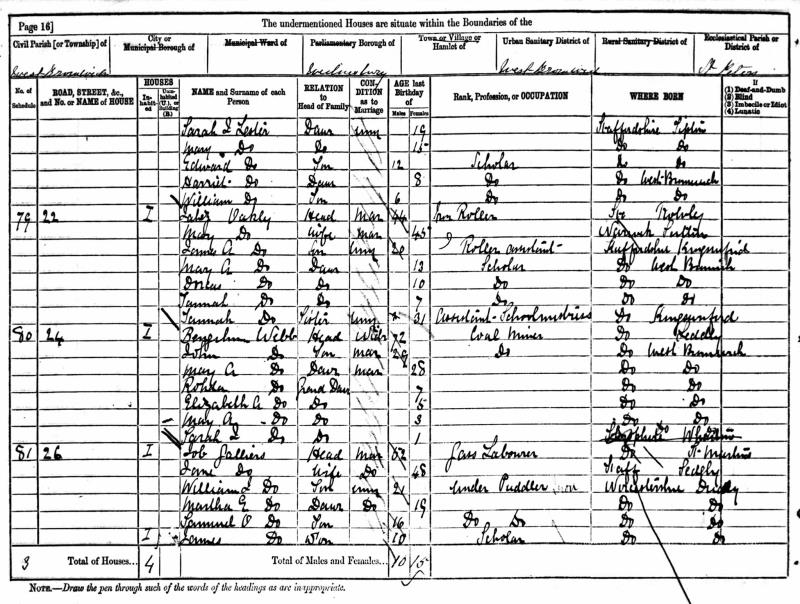 Page 16]
The undermentioned Houses are situate within the Boundaries of the
Civil Parish [or Township] of
City or Municipal Borough of
Municipal Ward of
Parliamentary Borough of
Town or Village or Hamlet of
Urban Sanitary District of
Rural Sanitary District of
Ecclesiastical Parish or District of
West Bromwich Wednesbury West Bromwich St Peters
No. of Schedule
ROAD, STREET, &c., and No. or NAME of HOUSE
HOUSES
In-habit-ed
Un-inhabited (U.), or Building (B.)
NAME and Surname of each Person
RELATION to Head of Family
CON-DITION as to Marriage
AGE last Birthday of
Males Females
Rank, Profession, or OCCUPATION
WHERE BORN
If
(1) Deaf-and-Dumb
(2) Blind
(3) Imbecile or Idiot
(4) Lunatic
Sarah Lester Daur unm 19 Staffordshire Tipton
Mary Do Do 15 Do Do
Edward Do Son 12 Scholar Do Do
Harriet Do Daur 8 Do Do West Bromwich
William Do Son 6 Do Do Do
79 22 I Oakley Head Mar 44 Iron Roller Rowley
Mary Do Wife Mar 45 Warwick Sutton
James A Do Son Unm 20 Roller assistant Staffordshire Kingswinford
Mary A Do Daur 13 Scholar Do West Bromwich
Dorcas Do Do 10 Do Do Do
Hannah Do Do 7 Do Do Do
Hannah Do Sister unm 31 Assistant Schoolmistress Do Kingswinford
80 24 I Benjamin Webb Head Widr 72 Coal Miner Do Sedgley
John Do Son mar 29 Do Do West Bromwich
Mary A Do Daur mar 28 Do Do
Rohda Do Grand Daur 7 Do Do
Elizabeth A Do Do 5 Do Do
Mary A Do Do 3 Do Do
Sarah Do Do 1 Do
81 26 I Job Head Mar 52 Gas Labourer Do St Martins
Jane Do Wife Do 48 Staff Sedgley
William Do Son unm 21 Under Puddler iron Worcestershire Dudley
Martha E Do Daur Do 19 Do Do
Samuel O Do Son 16 Do Do Do Do
I James Do Son 10 Scholar Do Do
3 Total of Houses... 4 Total of Males and Females... 10 15
NOTE.—Draw the pen through such of the words of the headings as are inappropriate.